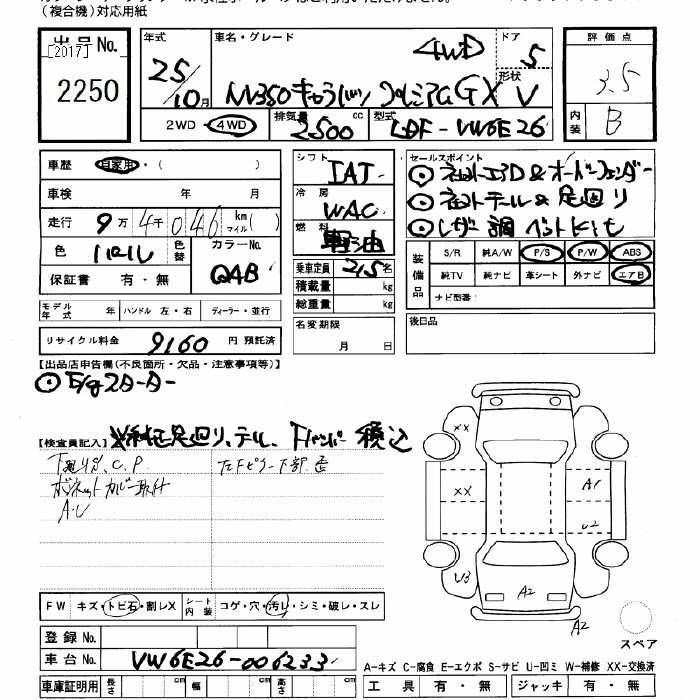 （複合機）対応用紙
出品No.
[2017]
2250
年式
25/10月
車名・グレード
4WD
NV350キャラバン プレミアムGX
ドア
5
形状
V
評価点
3.5
内装
B
2WD・4WD
排気量
2500 cc
型式
LDF-VW6E26
車歴 自家用・（ ）
車検 年 月
走行 9万4千046 km マイル( )
色 パール
色替
カラーNo.
QAB
保証書 有・無
シフト
IAT
冷房
WAC
燃料
軽油
乗車定員 2,5名
積載量 kg
総重量 kg
セールスポイント
テール & 足廻り
レザー調
装備品
S/R 純A/W P/S P/W ABS
純TV 純ナビ 革シート 外ナビ エアB
ナビ型番:
モデル年式 年 ハンドル 左・右 ディーラー・並行
リサイクル料金 9160 円 預託済
名変期限
月 日
後日品
【出品店申告欄(不良箇所・欠品・注意事項等)】
E/gスターター
【検査員記入】
※純正足廻り、テール、Fバンパー積込
下廻りサ、C.P.
左Fピラー下部歪
ボンネットカバー取付
A・U
XX
XX
A1
U2
U3
A2
A2
スペア
FW キズ・トビ石・割レX
シート内装 コゲ・穴・汚レ・シミ・破レ・スレ
登録No.
車台No. VW6E26-006233
車庫証明用 長さ cm 幅 cm 高さ cm
A-キズ C-腐食 E-エクボ S-サビ U-凹ミ W-補修 XX-交換済
工具 有・無 ジャッキ 有・無